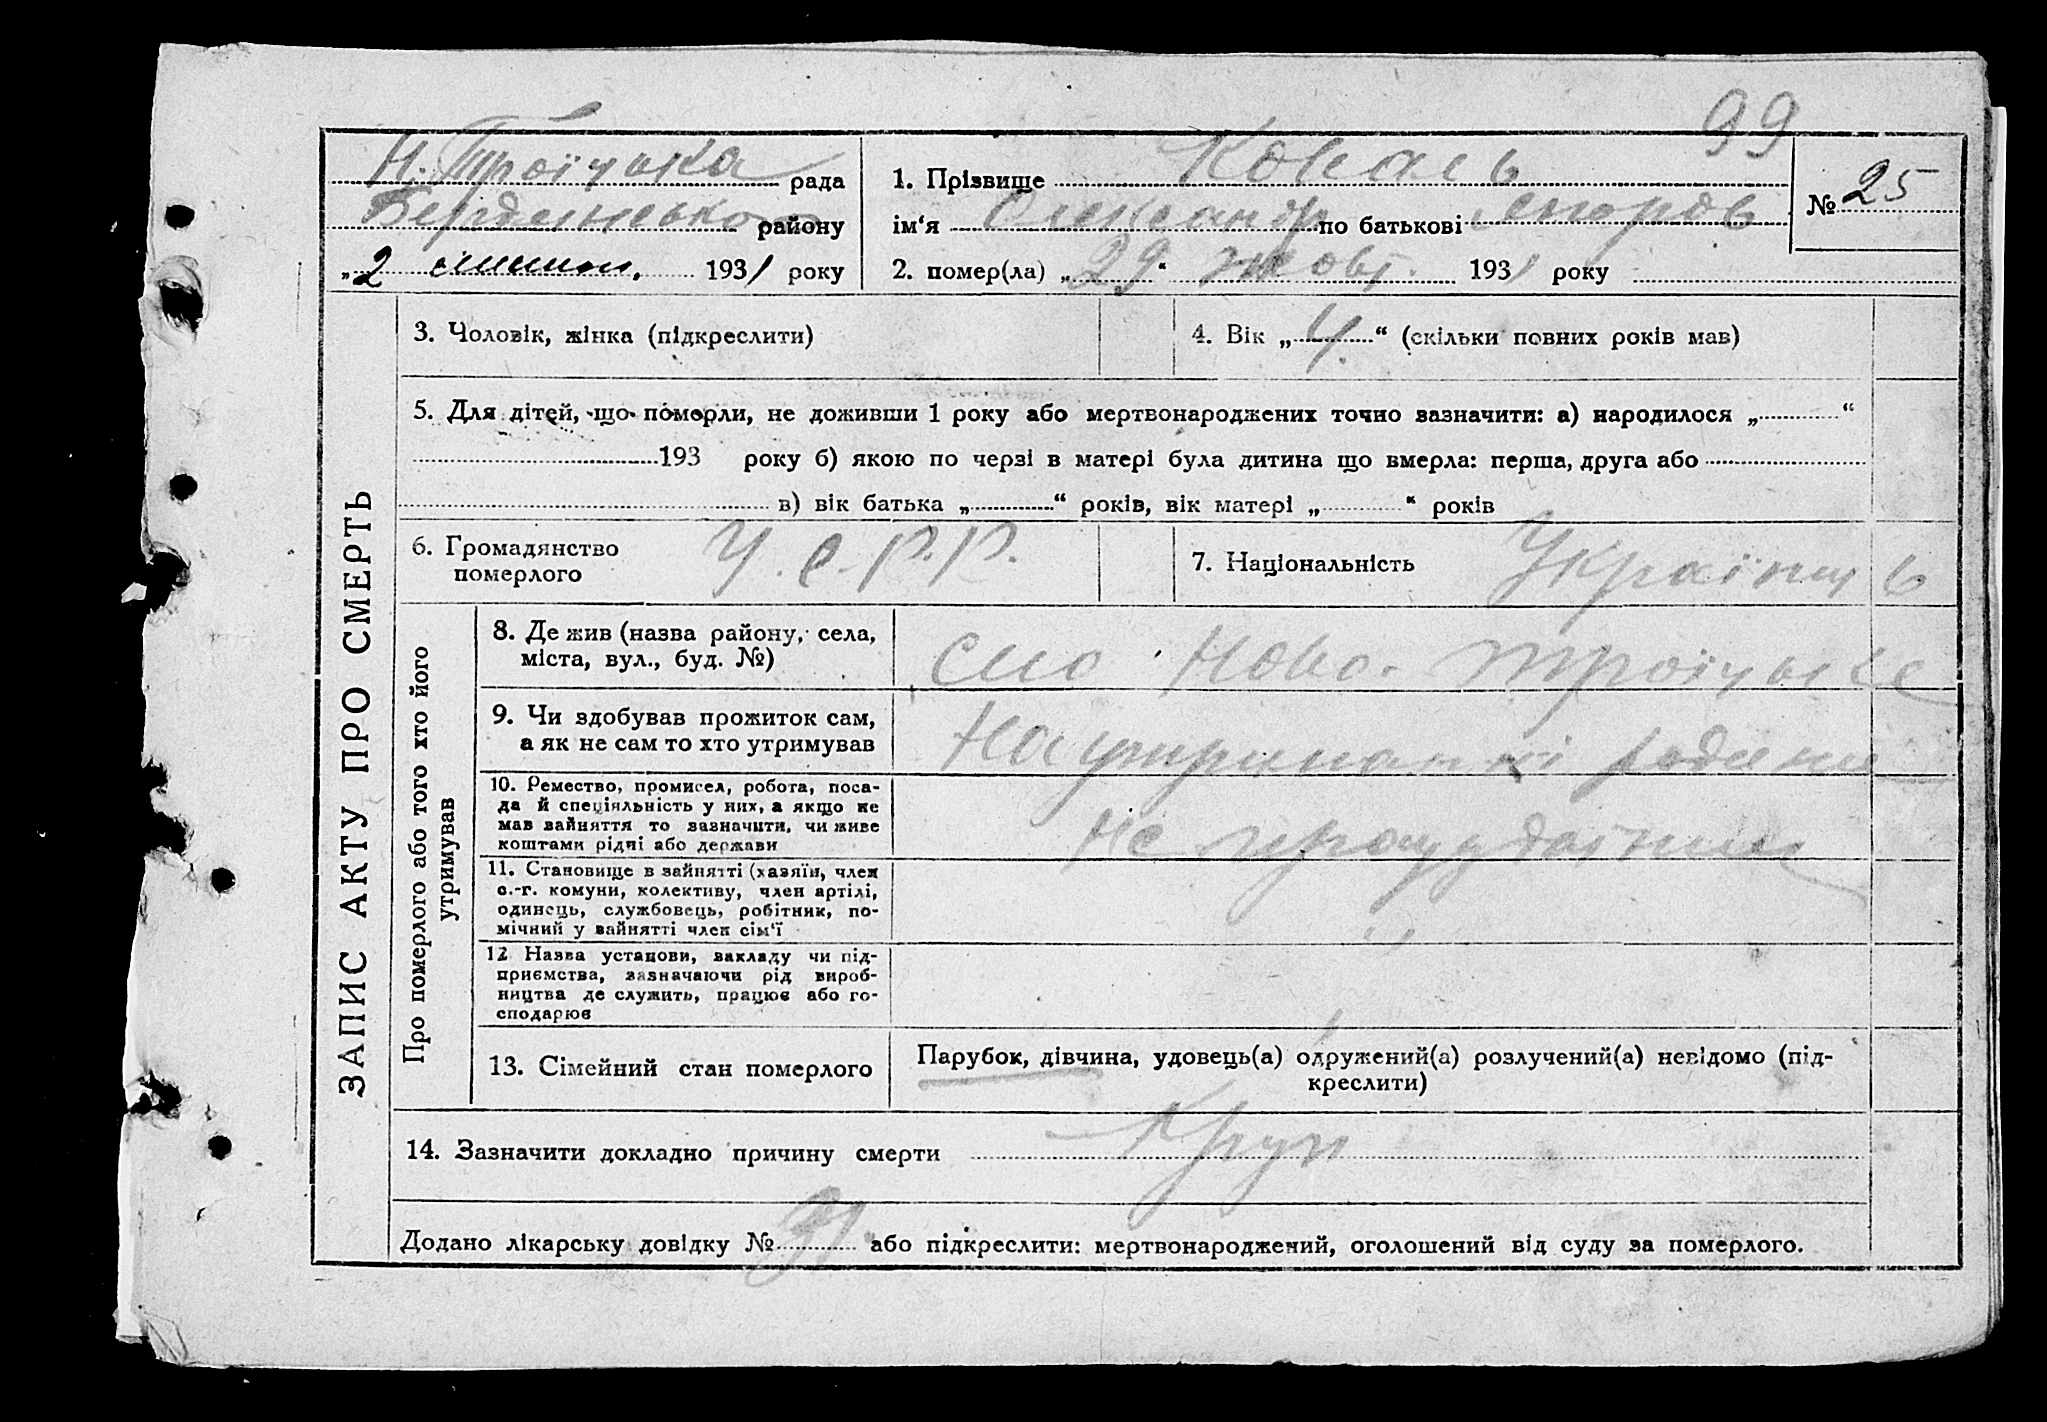 99
Н. Троїцька рада
Бердянського району
„2 1931 року
1. Прізвище Коваль
ім‘я Олександр по батькові
2. помер(ла) „29“ жовт. 1931 року
№ 25
ЗАПИС АКТУ ПРО СМЕРТЬ
3. Чоловік, жінка (підкреслити)
4. Вік „4.“ (скільки повних років мав)
5. Для дітей, що померли, не доживши 1 року або мертвонароджених точно зазначити: а) народилося „ “
193 року б) якою по черзі в матері була дитина що вмерла: перша, друга або
в) вік батька „ “ років, вік матері „ “ років
6. Громадянство
померлого
У.С.Р.Р.
7. Національність Українць
Про померлого або того хто його
утримував
8. Де жив (назва району, села,
міста, вул., буд. №)
село Ново-Троїцьке
9. Чи здобував прожиток сам,
а як не сам то хто утримував
На утриманні родини
10. Ремество, промисел, робота, поса-
да й спеціяльність у них, а якщо не
мав зайняття то зазначити, чи живе
коштами рідні або держави
Не
11. Становище в зайнятті (хазяїн, член
с.-г. комуни, колективу, член артілі,
одинець, службовець, робітник, по-
мічний у зайнятті член сім‘ї
12 Назва установи, закладу чи під-
приємства, зазначаючи рід вироб-
ництва де служить, працює або го-
сподарює
13. Сімейний стан померлого
Парубок, дівчина, удовець(а) одружений(а) розлучений(а) невідомо (під-
креслити)
14. Зазначити докладно причину смерти Круп
Додано лікарську довідку № 31. або підкреслити: мертвонароджений, оголошений від суду за померлого.